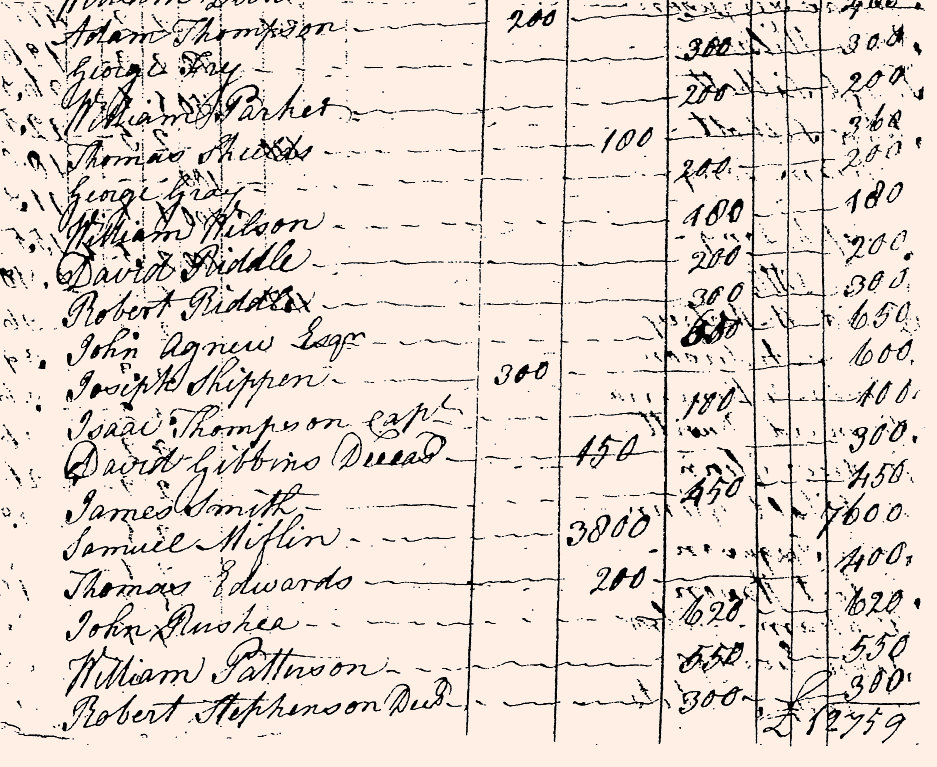 Adam Thompson 200 400
George Fry 300 300
William Parker 200 200
Thomas Shields 180 360
George Gray 200 200
William Wilson 180 180
David Riddle 200 200
Robert Riddle 300 300
John Agnew Esqr 650 650
Joseph Shippen 300 600
Isaac Thompson Capt 100 100
David Gibbins Decead 150 300
James Smith 450 450
Samuel Miflin 3800 7600
Thomas Edwards 200 400
John Rushea 620 620
William Patterson 550 550
Robert Stephenson Decd 300 300
£ 12759